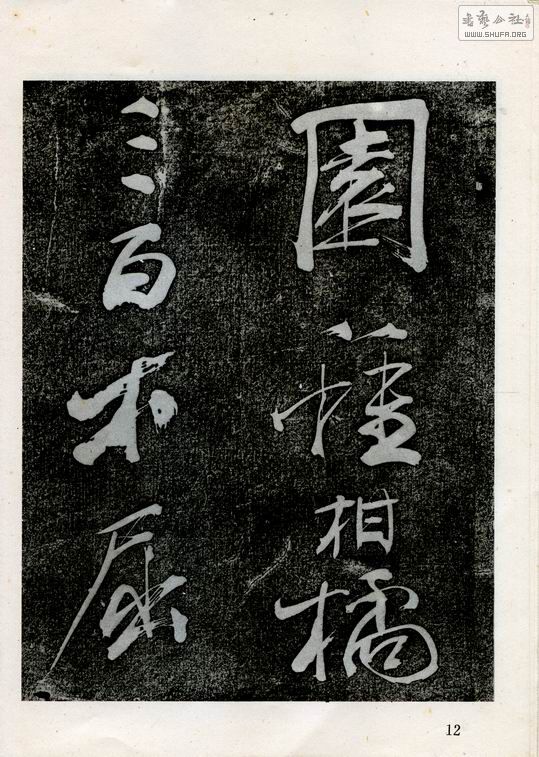 書藝公社
WWW.SHUFA.ORG
園種柑橘
三百本屈
12